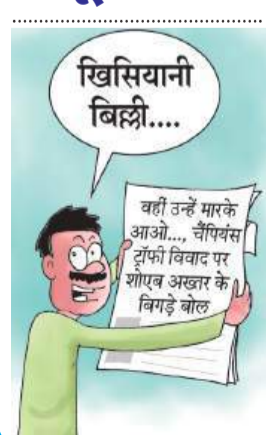 खिसियानी
बिल्ली....
वहीं उन्हें मारके
आओ..., चैंपियंस
ट्रॉफी विवाद पर
शोएब अख्तर के
बिगड़े बोल